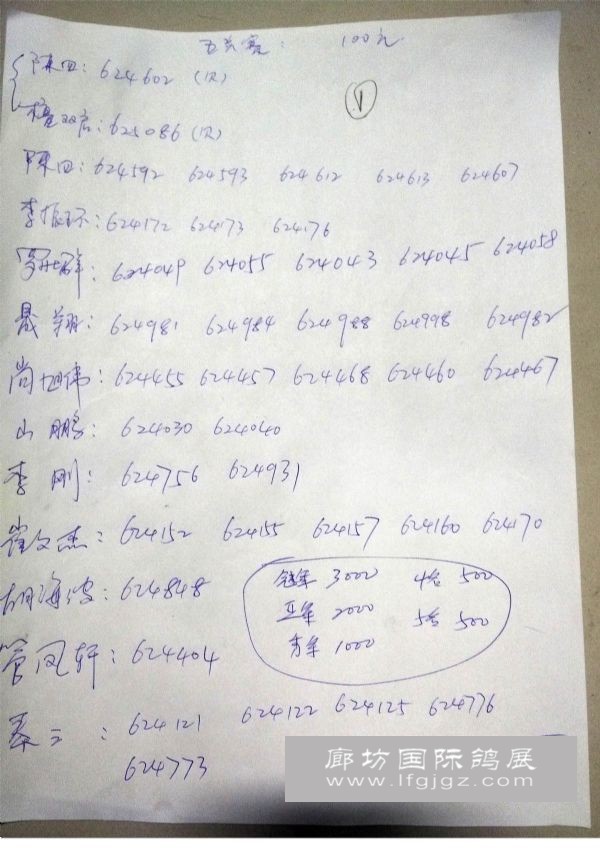 五关赛: 100元
陈四: 624602 (以)
①
双启: 625086 (以)
陈四: 624592 624593 624612 624613 624607
李振环: 624172 624173 624176
群: 624049 624055 624043 624045 624058
晟翔: 624981 624984 624988 624998 624982
尚旭伟: 624455 624457 624468 624460 624467
山鹏: 624030 624040
李刚: 624756 624931
崔文杰: 624152 624155 624157 624160 624170
胡海波: 624848
冠军 3000 4名 500
亚军 2000 5名 500
季军 1000
管凤轩: 624404
秦云: 624121 624122 624125 624776
624773
廊坊国际鸽展
www.lfgjgz.com